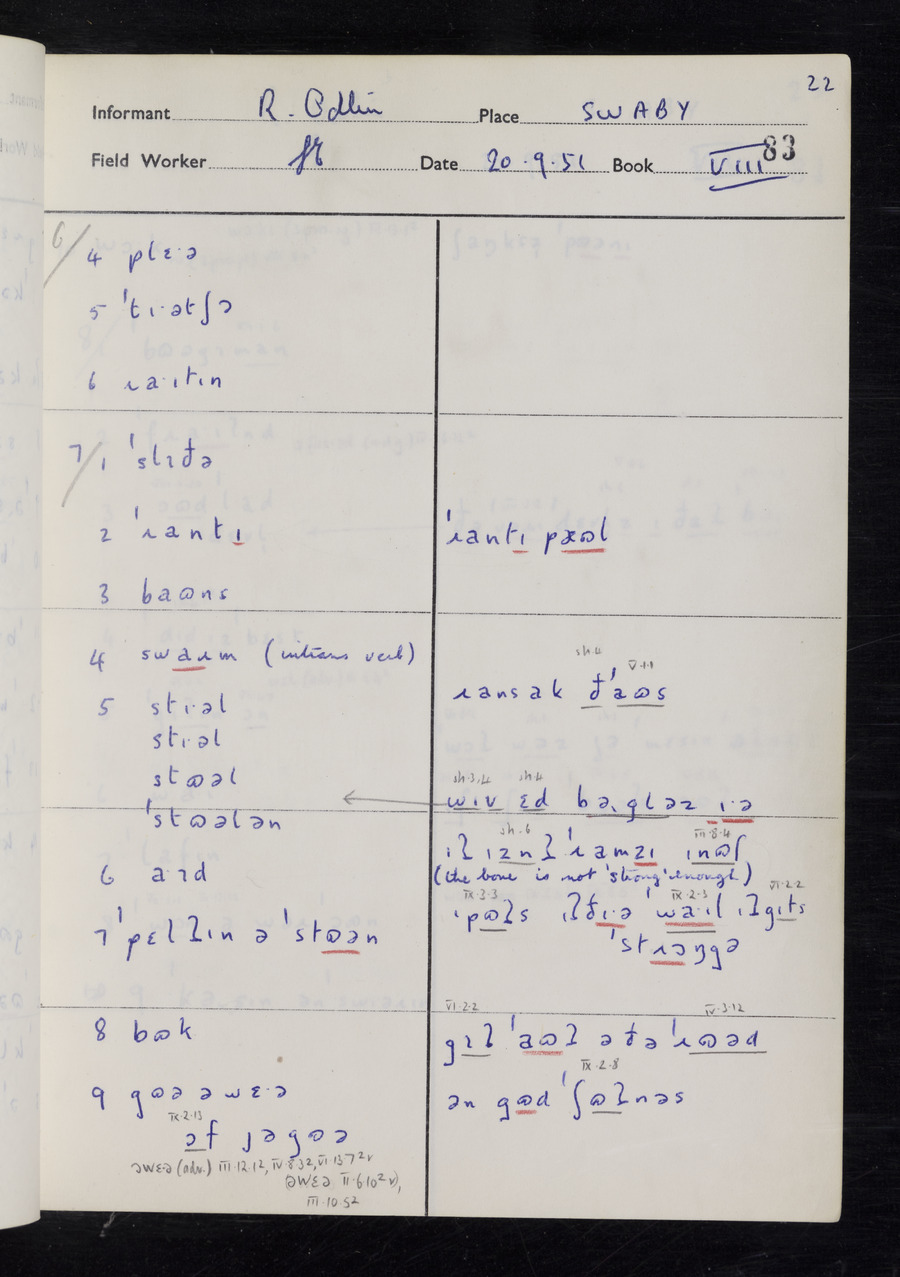 22
Informant R. Odlin Place SWABY
Field Worker Date 20.9.51 Book VIII 83
6/ 4 plɛ·ə
5 'tɪ·ətʃə
6 ɹa·ɪtɪn
7/ 1 'slɪðə
2 'ɹantɪ 'ɹantɪ pæʊl
3 baʊns
4 swaɹm (intrans verb)
sh.4 V.1.1
ɹansak ð'aʊs
5 stɪ·əl
stɪ·əl
stʊəl
'stʊələn
sh.3,4 sh.4
wɪv ɛd bəɹgləz ɪ·ə
sh.6 III.8.4
ɪʔ ɪznʔ 'ɹamzɪ ɪnʊf
(the bone is not 'strong' enough)
6 a·ɪd
IX.3.3 IX.2.3 VI.2.2
'pʊʔs ɪʔðɪ·ə 'wa·ɪl ɪʔgɪts
'stɹɔŋgə
7 'pɛlʔɪn ə 'stʊən
VI.2.2 IV.3.12
8 bʊk
gɪʔ 'aʊʔ ə ðə 'ɹʊəd
9 gʊə əwɛ·ə
IX.2.8
ən gʊd 'ʃʊʔnəs
IX.2.13
əf jəgʊə
əwɛə (adv.) III.12.12, IV.8.32, VI.13.7²v
əwɛə II.6.10²v),
III.10.5²